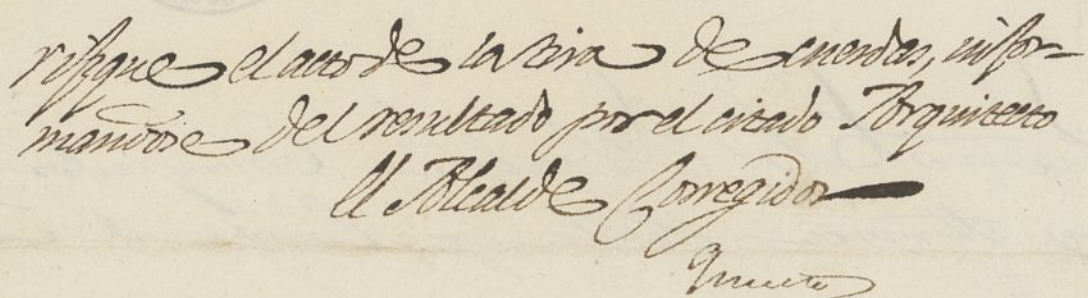 rifique el acto de la tira de cuerdas, infor-
mandose del resultado por el citado Arquitecto
El Alcalde Corregidor